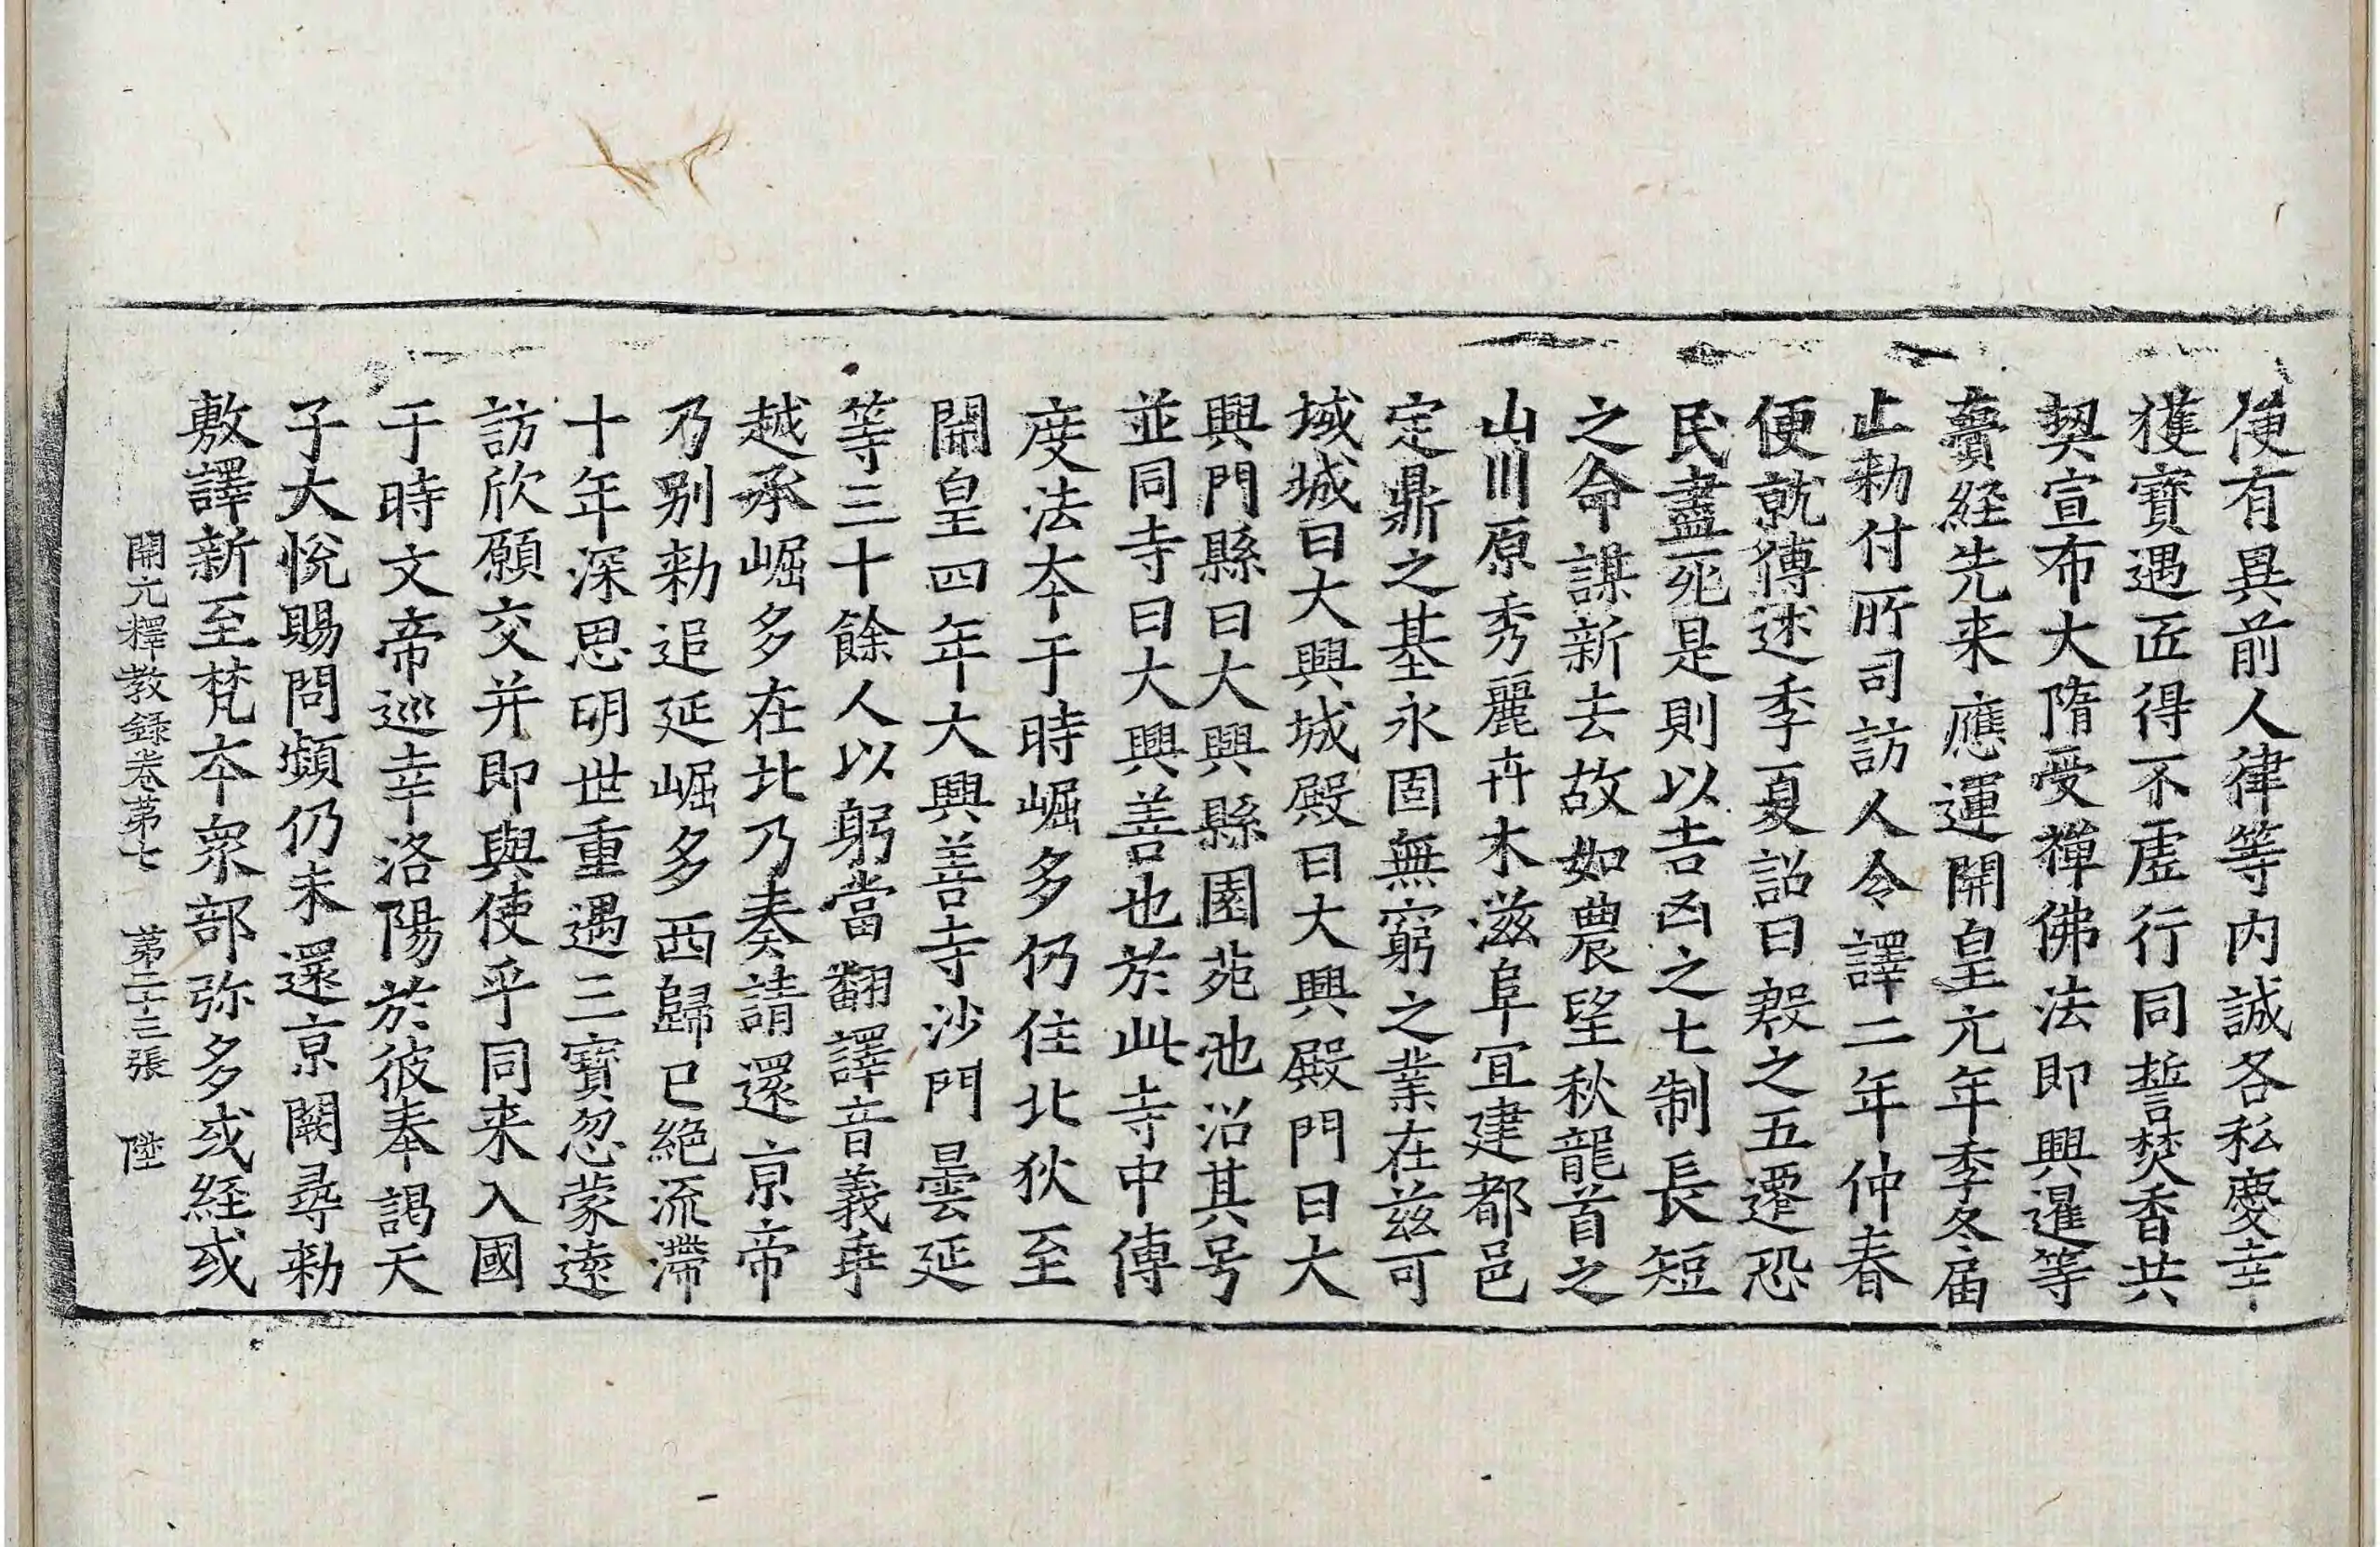 使有異前人律等内誠各私慶幸
獲寶遇匠得不虛行同誓焚香共
契宣布大隋受禪佛法即興暹等
賷経先来應運開皇元年季冬届
止勑付所司訪人令譯二年仲春
便就傳述季夏詔曰殷之五遷恐
民盡死是則以吉凶之土制長短
之命謀新去故如農望秋龍首之
山川原秀麗卉木滋阜宜建都邑
定鼎之基永固無窮之業在兹可
域城曰大興城殿曰大興殿門曰大
興門縣曰大興縣園苑池沼其号
並同寺曰大興善也於此寺中傳
度法夲于時崛多仍住北狄至
開皇四年大興善寺沙門曇延
等三十餘人以躬當翻譯音義乖
越承崛多在北乃奏請還京帝
乃别勑追延崛多西歸已絶流滯
十年深思明世重遇三寶忽蒙逺
訪欣願交并即與使乎同来入國
于時文帝巡幸洛陽於彼奉謁天
子大悅賜問頻仍未還京闕尋勑
敷譯新至梵夲衆部弥多或経或
開元釋教錄卷第七　第二十三張　陞